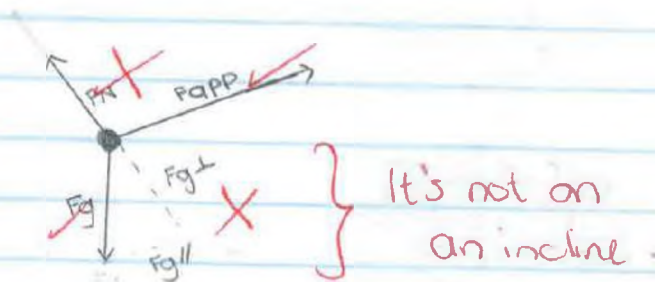 FN
Fapp
Fg
Fg⊥
Fg//
It's not on
an incline.